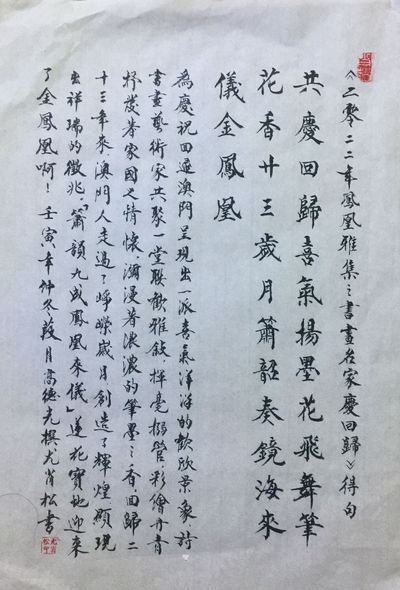 《二零二二年鳳凰雅集之書畫名家慶回歸》得句
共慶回歸喜氣揚墨花飛舞筆
花香廿三歲月簫韶奏鏡海來
儀金鳳凰
為慶祝回歸澳門呈現出一派喜氣洋洋的歡欣景象,詩
書畫藝術家共聚一堂聯歡雅敍揮毫搦管彩繪丹青
抒發着家國之情懷,瀰漫着濃濃的筆墨之香,回歸二
十三年來澳門人走過了崢嶸歲月創造了輝煌顯現
出祥瑞的徵兆,「簫韶九成鳳凰來儀」蓮花寶地迎來
了金鳳凰啊!壬寅年仲冬葭月高德光撰尤肖松書